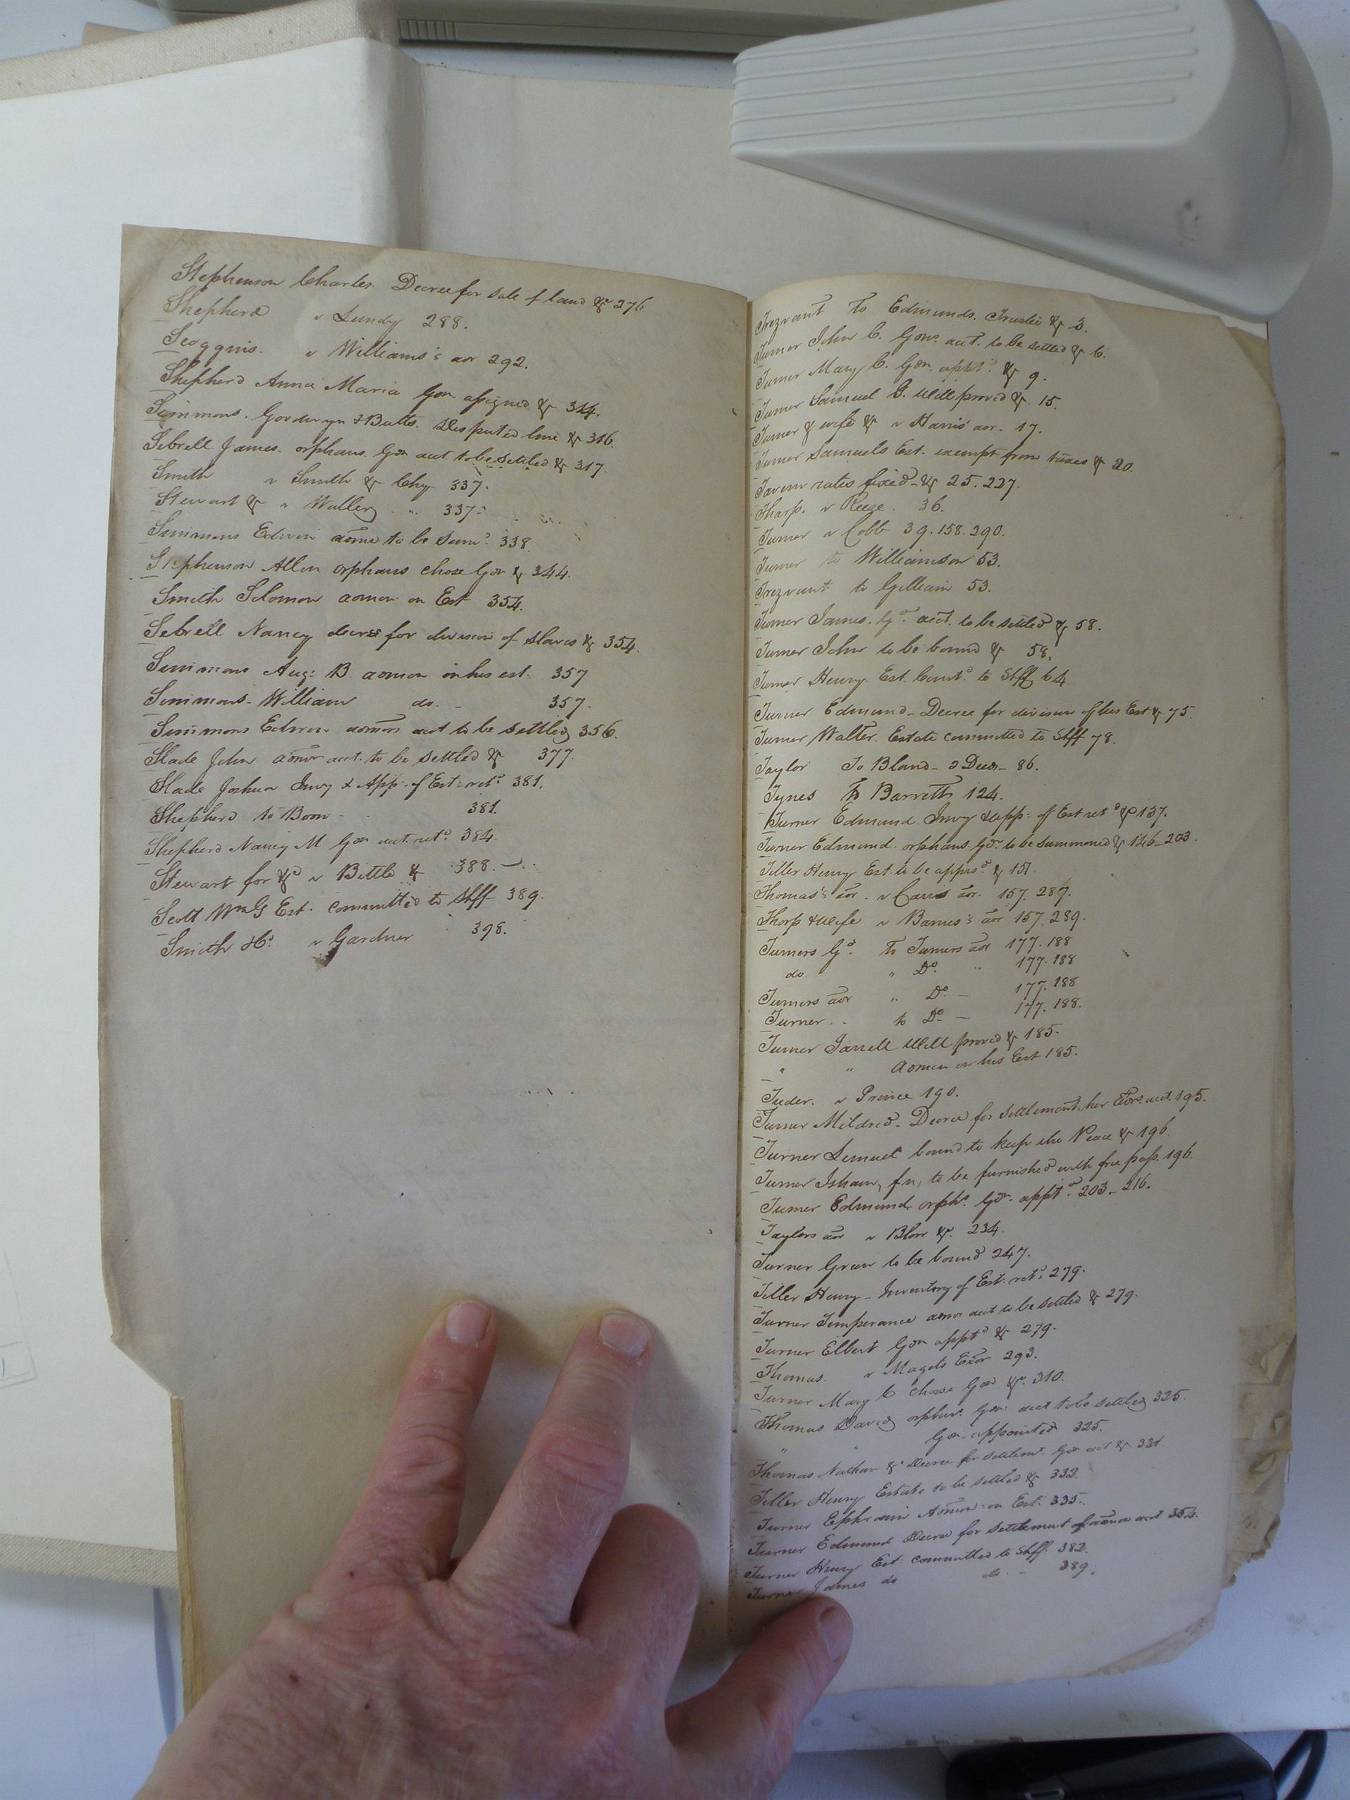 Stephenson Charles. Decree for sale of land &c 276.
Shepherd v Lundy 288.
Scoggins. v Williams's aor 292.
Shepherd Anna Maria Gdn assigned & 314.
Simmons. Goodwyn & Butts. Disputed line & 316.
Sebrell James. orphans Gdn acct to be settled & 317.
Smith v Smith & Chy 337.
Stewart & v Waller " 337.
Simmons Edwin admr to be sumd. 338.
Stephenson Allen orphans chose Gdn & 344.
Smith Solomon admon on Est 354.
Sebrell Nancy decree for division of slaves & 354.
Simmons Aug: B. admon on his est. 357
Simmons. William do. - 357.
Simmons Edwin admors acct to be settled 356.
Slade John admor acct. to be settled & 377.
Slade Joshua Invy & App. of Est: retd. 381.
Shepherd to Bom - 381.
Shepherd Nancy M Gdn acct. retd. 384.
Stewart for &c v Bittle & 388.
Scott Wm G Est. committed to Shff 389.
Smith &c. v Gardner 398.
Trezvant To Edmunds. Trustee & 3.
Turner John C. Gdns acct. to be settled & 6.
Turner Mary C. Gdn. apptd. & 9.
Turner Samuel G. Will proved & 15.
Turner & wife & v Harris' aor. 17.
Turner Samuels Est. exempt from taxes & 20.
Tavern rates fixed & 25. 227.
Tharp. v Reese. 36.
Turner v Cobb 39. 158. 290.
Turner to Williamson 53.
Trezvant to Gilliam 53.
Turner James. Gdn. acct. to be settled & 58.
Turner John to be bound & 58.
Turner Henry Est. Comtd. to Shff 64
Turner Edmund - Decree for division of his Est & 75.
Turner Walter. Estate committed to Shff 78.
Taylor To Bland - 2 Deeds - 86.
Tynes To Barrett 124.
Turner Edmund. Invy & app. of Est retd & 137.
Turner Edmund. orphans Gdn. to be summoned & 146_203.
Tiller Henry Est to be apprsd. & 151.
Thomas's aor. v aor. 157. 287.
Thorp & Wife v Barnes's aor 157. 289.
Turners Gdn. To Turners aor 177. 188
do. " Do. " 177. 188
Turners aor " Do. - 177. 188
Turner. . to Do. - 177. 188.
Turner Jarrell Will proved & 185.
" " Admon on his Est 185.
Tuder. v Prince 190.
Turner Mildred - Decree for settlement her Exors acct. 195.
Turner Lemuel bound to keep the Peace & 196
Turner Isham, fn, to be furnished with free pass. 196.
Turner Edmund orphs. Gdn. apptd. 203_216.
Taylors aor v Blow & 234.
Turner Green to be bound 247.
Tiller Henry - Inventory of Est. retd. 279.
Turner Temperance admr acct to be settled & 279.
Turner Elbert Gdn apptd & 279.
Thomas. v Magets Exor 293.
Turner Mary C chose Gdn & 310.
Thomas David orphans. Gdns acct to be settled 325.
" " Gdn appointed 325.
Thomas Nathan & Decree for settlemt. Gdn acct & 331
Tiller Henry Estate to be settled & 332
Turner Ephraim Admon on Est. 335.
Turner Edmund Decree for settlement of admon acct 354.
Turner Henry Est committed to Shff. 382.
Turner James do do. - 389.